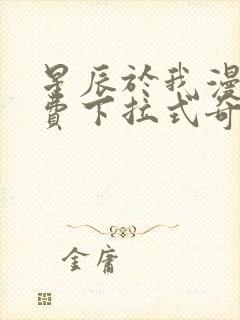 星辰於我漫
費下拉式奇
金庸